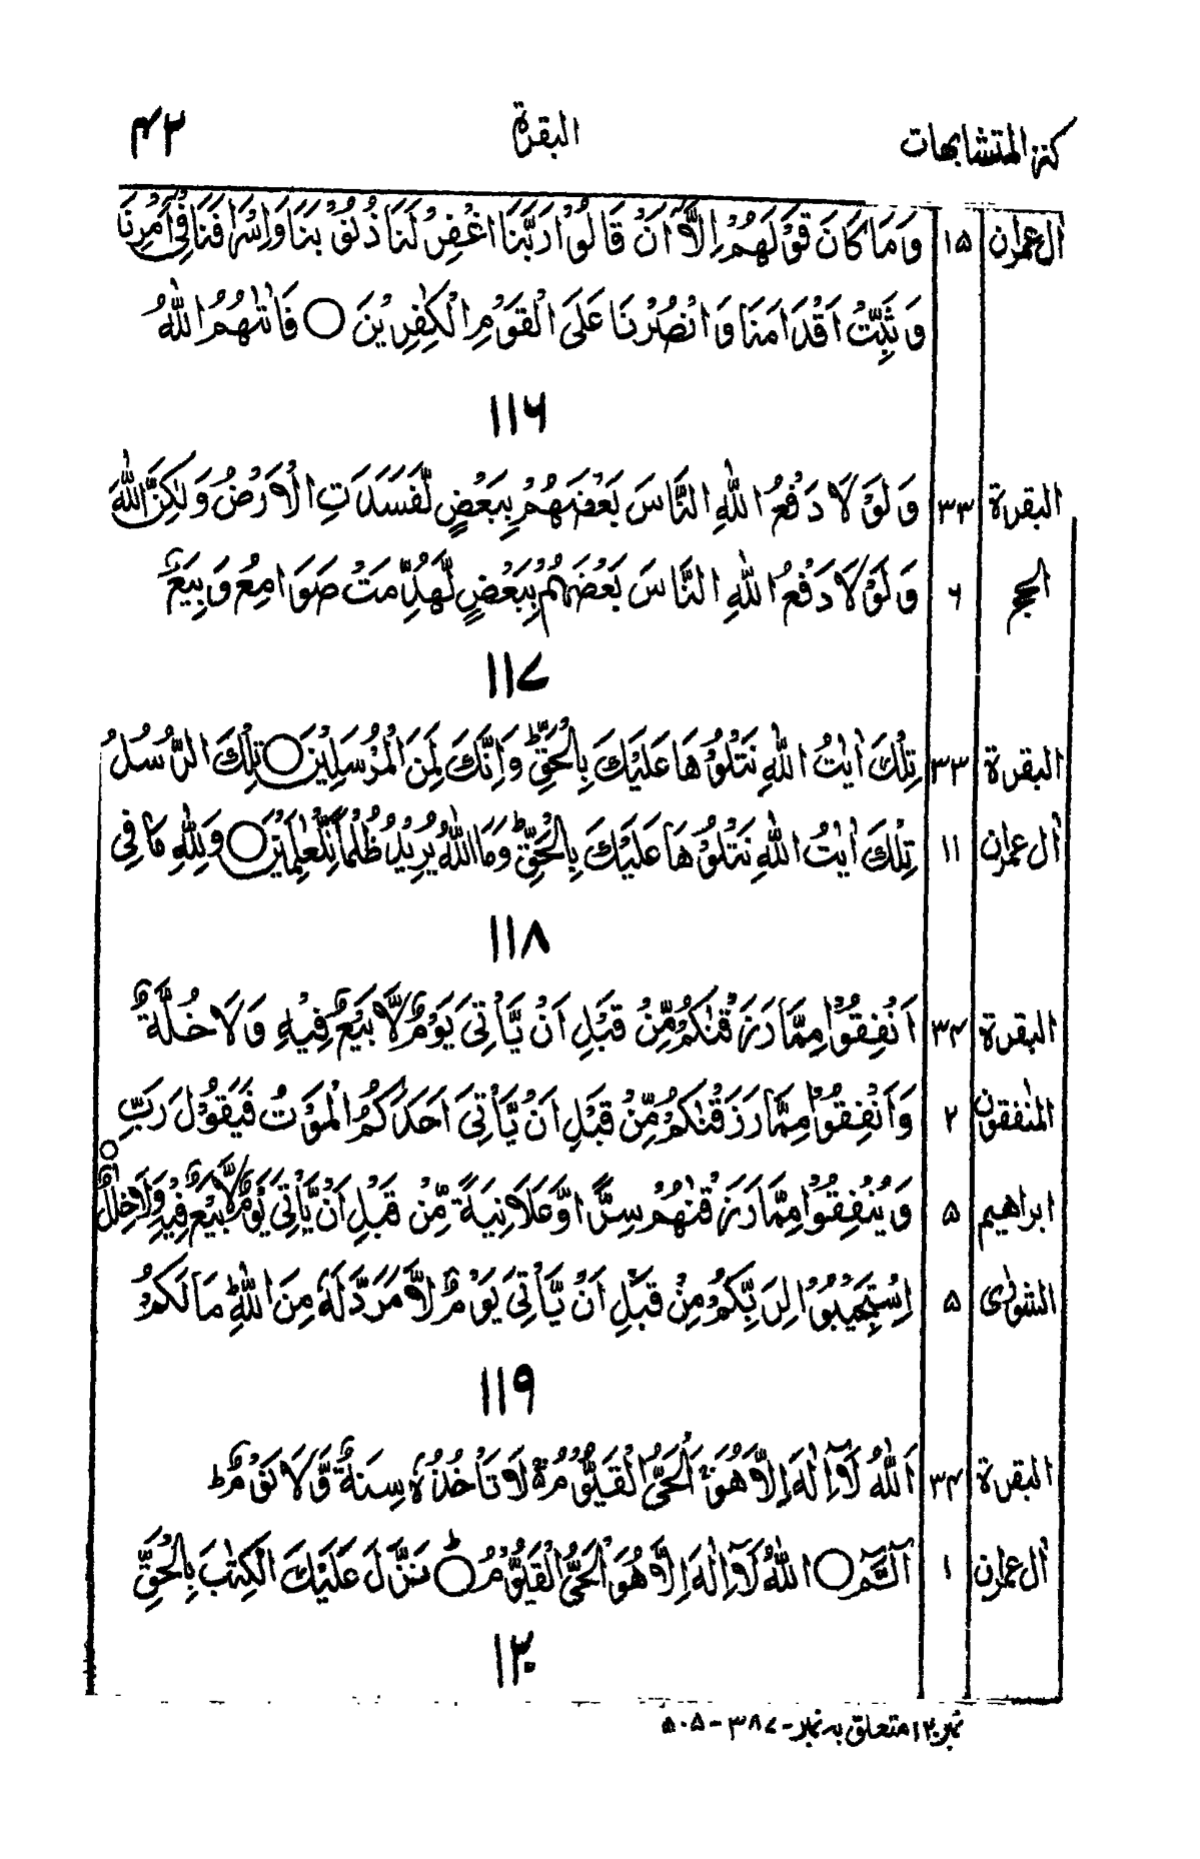 كنز المتشابهات البقرة ۴۲
اٰل عمران ۱۵ وَمَا كَانَ قَوْلَهُمْ اِلَّاۤ اَنْ قَالُوْا رَبَّنَا اغْفِرْ لَنَا ذُنُوْبَنَا وَاِسْرَافَنَا فِىْۤ اَمْرِنَا
وَثَبِّتْ اَقْدَامَنَا وَانْصُرْنَا عَلَى الْقَوْمِ الْكٰفِرِيْنَ ○ فَاٰتٰهُمُ اللّٰهُ
۱۱۶
البقرة ۳۳ وَلَوْلَا دَفْعُ اللّٰهِ النَّاسَ بَعْضَهُمْ بِبَعْضٍ لَّفَسَدَتِ الْاَرْضُ وَلٰكِنَّ اللّٰهَ
الحج ۶ وَلَوْلَا دَفْعُ اللّٰهِ النَّاسَ بَعْضَهُمْ بِبَعْضٍ لَّهُدِّمَتْ صَوَامِعُ وَبِيَعٌ
۱۱۷
البقرة ۳۳ تِلْكَ اٰيٰتُ اللّٰهِ نَتْلُوْهَا عَلَيْكَ بِالْحَقِّ ؕ وَاِنَّكَ لَمِنَ الْمُرْسَلِيْنَ ○ تِلْكَ الرُّسُلُ
اٰل عمران ۱۱ تِلْكَ اٰيٰتُ اللّٰهِ نَتْلُوْهَا عَلَيْكَ بِالْحَقِّ ؕ وَمَا اللّٰهُ يُرِيْدُ ظُلْمًا لِّلْعٰلَمِيْنَ ○ وَلِلّٰهِ مَا فِى
۱۱۸
البقرة ۳۴ اَنْفِقُوْا مِمَّا رَزَقْنٰكُمْ مِّنْ قَبْلِ اَنْ يَّاْتِىَ يَوْمٌ لَّا بَيْعٌ فِيْهِ وَلَا خُلَّةٌ
المنٰفقون ۲ وَاَنْفِقُوْا مِمَّا رَزَقْنٰكُمْ مِّنْ قَبْلِ اَنْ يَّاْتِىَ اَحَدَكُمُ الْمَوْتُ فَيَقُوْلَ رَبِّ
ابراهيم ۵ وَيُنْفِقُوْا مِمَّا رَزَقْنٰهُمْ سِرًّا وَّعَلَانِيَةً مِّنْ قَبْلِ اَنْ يَّاْتِىَ يَوْمٌ لَّا بَيْعٌ فِيْهِ وَلَا خِلٰلٌ ○
الشورٰى ۵ اِسْتَجِيْبُوْا لِرَبِّكُمْ مِّنْ قَبْلِ اَنْ يَّاْتِىَ يَوْمٌ لَّا مَرَدَّ لَهٗ مِنَ اللّٰهِ ؕ مَا لَكُمْ
۱۱۹
البقرة ۳۴ اَللّٰهُ لَاۤ اِلٰهَ اِلَّا هُوَ ۚ اَلْحَىُّ الْقَيُّوْمُ ۚ لَا تَاْخُذُهٗ سِنَةٌ وَّلَا نَوْمٌ ؕ
اٰل عمران ۱ الٓمّٓ ○ اللّٰهُ لَاۤ اِلٰهَ اِلَّا هُوَ الْحَىُّ الْقَيُّوْمُ ○ؕ نَزَّلَ عَلَيْكَ الْكِتٰبَ بِالْحَقِّ
۱۲۰
نمبر ۱۲۰ متعلق به نمبر - ۳۸۷ - ۵۰۵